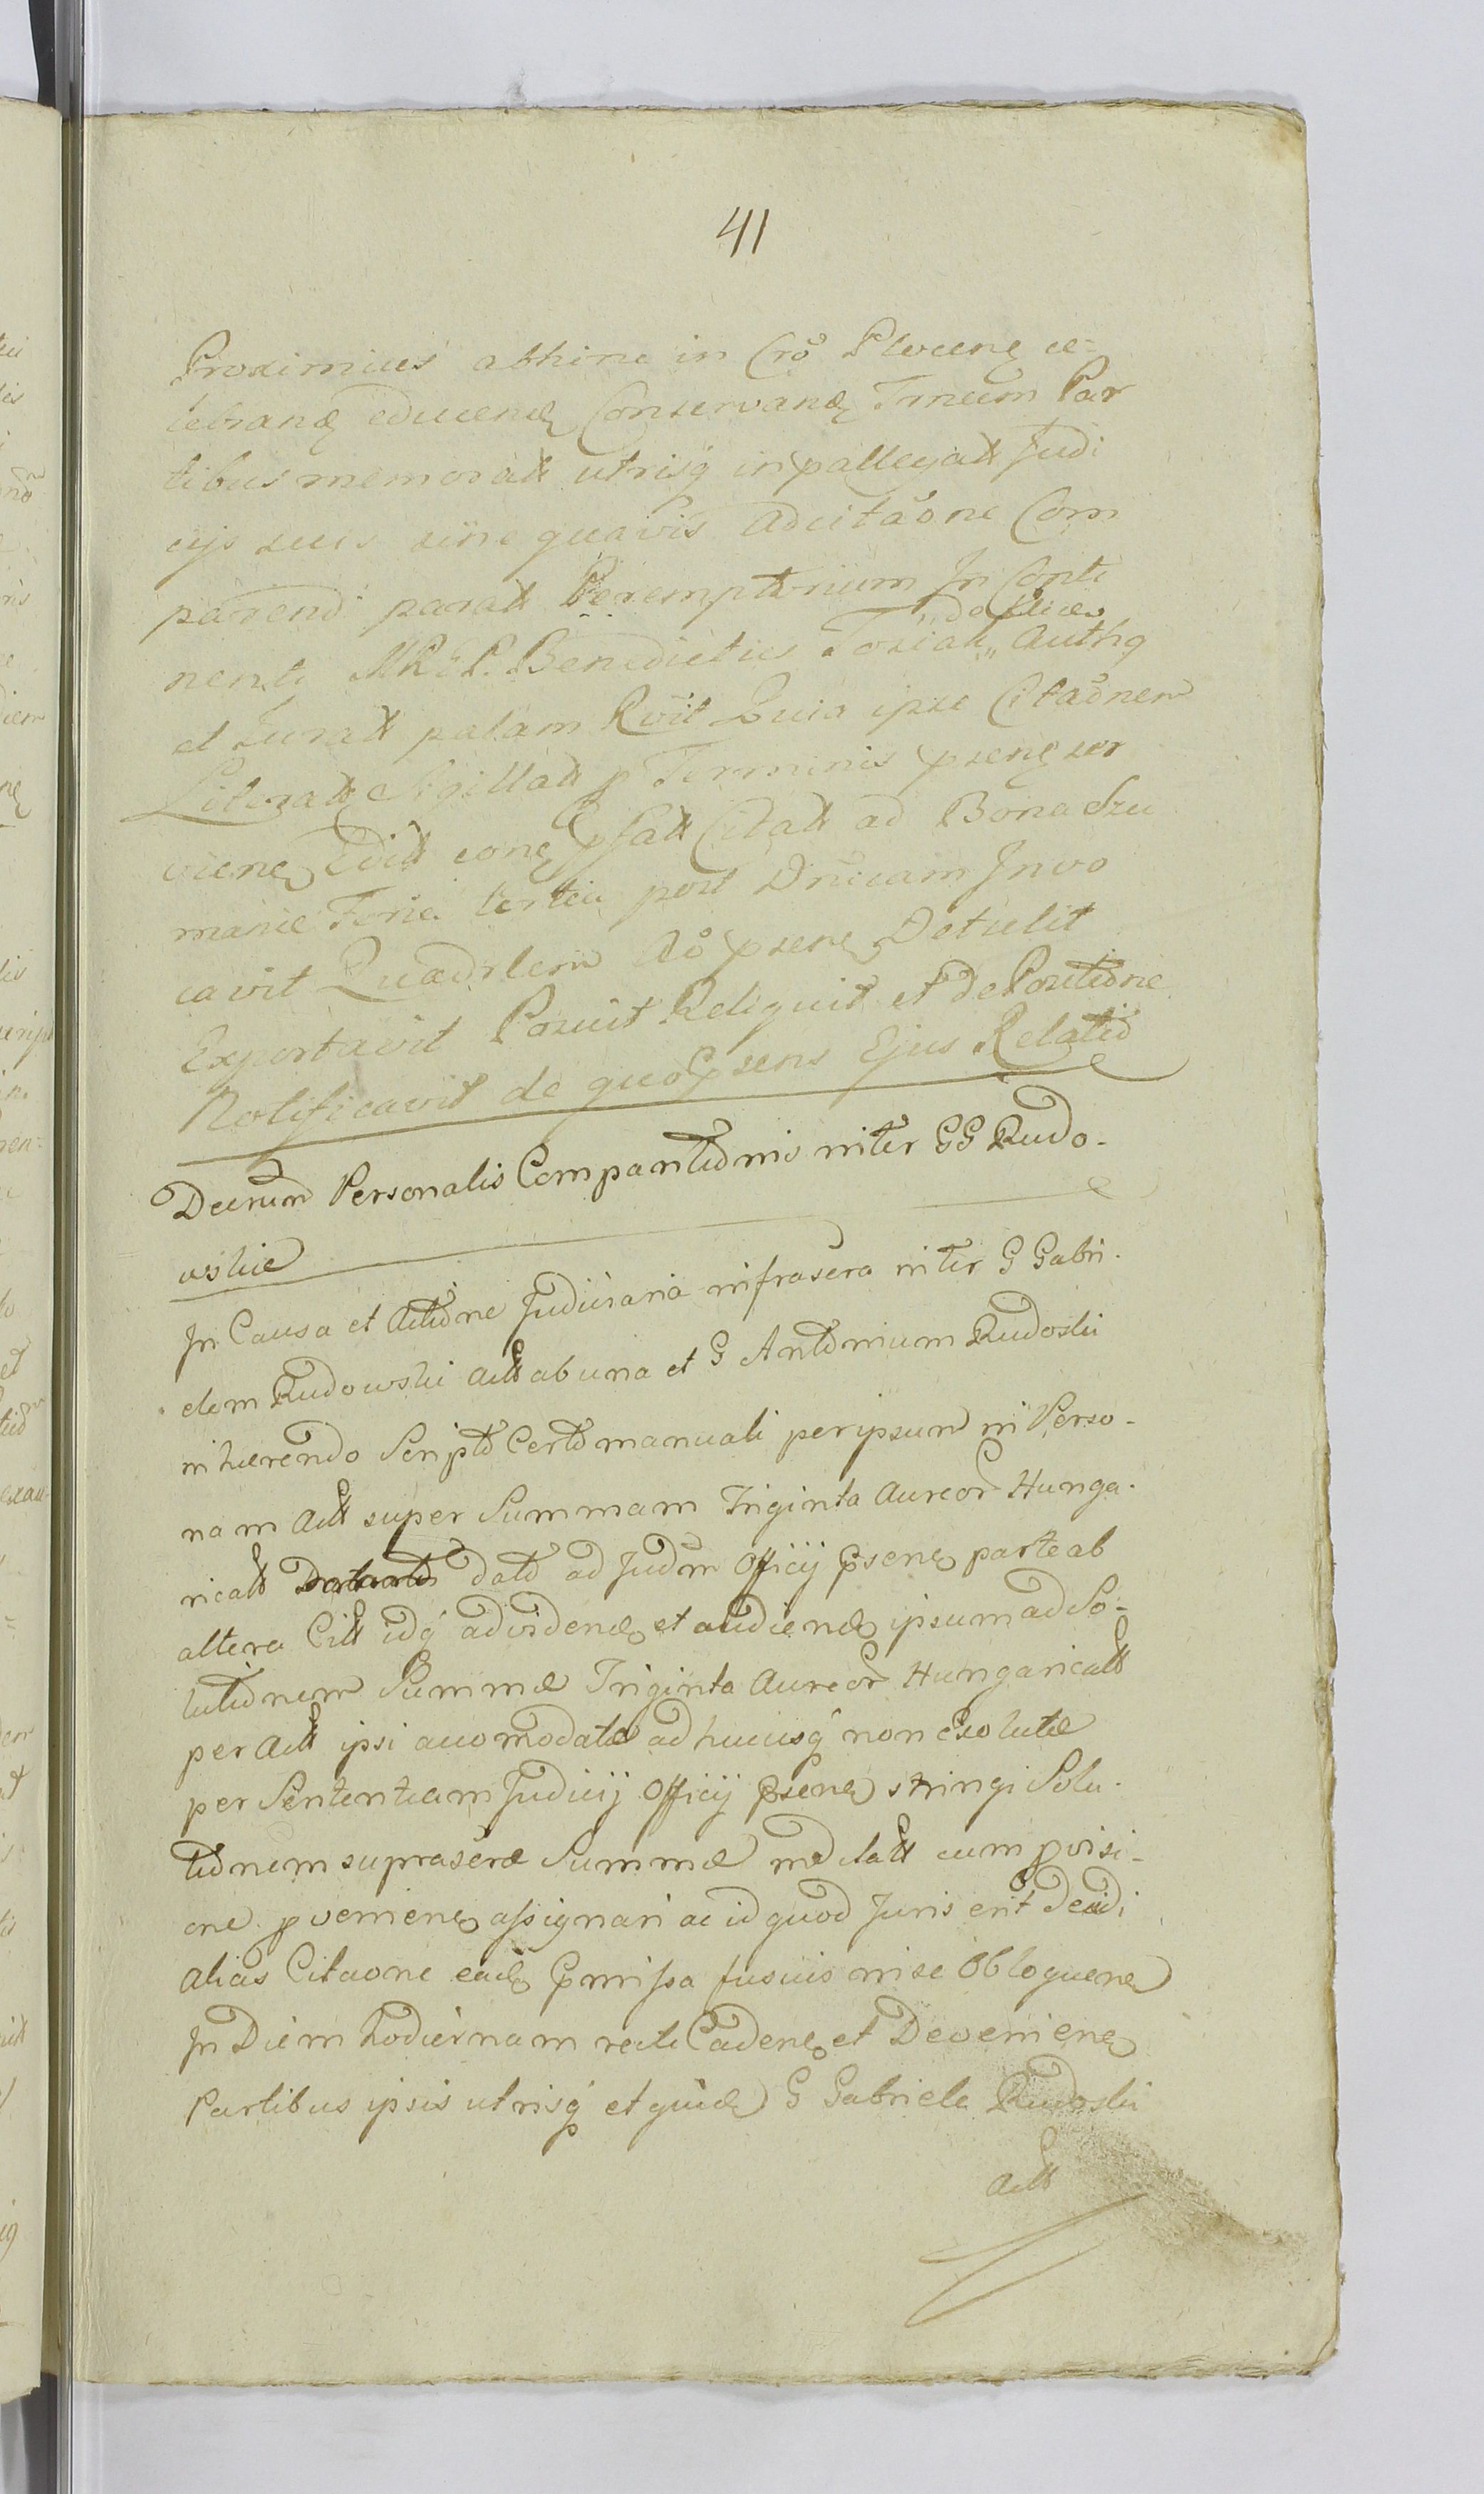 41
Proximius abhinc in Crõ Plocenę ce=
lebrandę educendę Conservandę Tmeum Par
tibus memoratt utrisq̃ in pallegatt Judi
cijs suis sine quavis Adcitãone Com
parend paratt Peremptorium In Conti
nenti MREP. Benedictus Authq
et Juratt palam Rvit Quia ipse Citaõnem
Literatt Sigillatt p Terminis psenę ser
vienę Edit eonę psatt Citatt ad Bona Szu
manie Feria tertia post Dnicam Invo
cavit Quadrlem Aõ psenę Detulit
Exportavit Posuit Reliquit et de Positione
Notificavit de quo psens Ejus Relatio
Decrum Personalis Comparitionis inter GG Rudo-
wskie
In Causa et Actione Judiciaria infrasera inter G Gabri-
elem Rudowski Actt ab una et G Antonium Rudoski
inhærendo Scripto Certo manuali per ipsum in Perso-
nam Actt super Summam Triginta Aureor Hunga-
ricatt dato ad Judm Officij Psenę parte ab
altera Citt idq̃ ad vidend et audiend ipsum ad So-
lutionem Summæ Triginta Aureor Hungaricatt
per Actt ipsi accomodatæ ad hucusq̃ non exolutæ
per Sententiam Judicij Officij Psenę stringi Solu-
tionem suprascræ Summæ cum pvisi-
one pvenienę assignari ac id quod Juris erit decidi
alias Citaone eadę Pmissa fusius in se Obloquenę
In Diem hodiernam recte Cadenę et Devenienę
Partibus ipsis utrisq̃ et quidę G Gabriele Rudoski
Actt